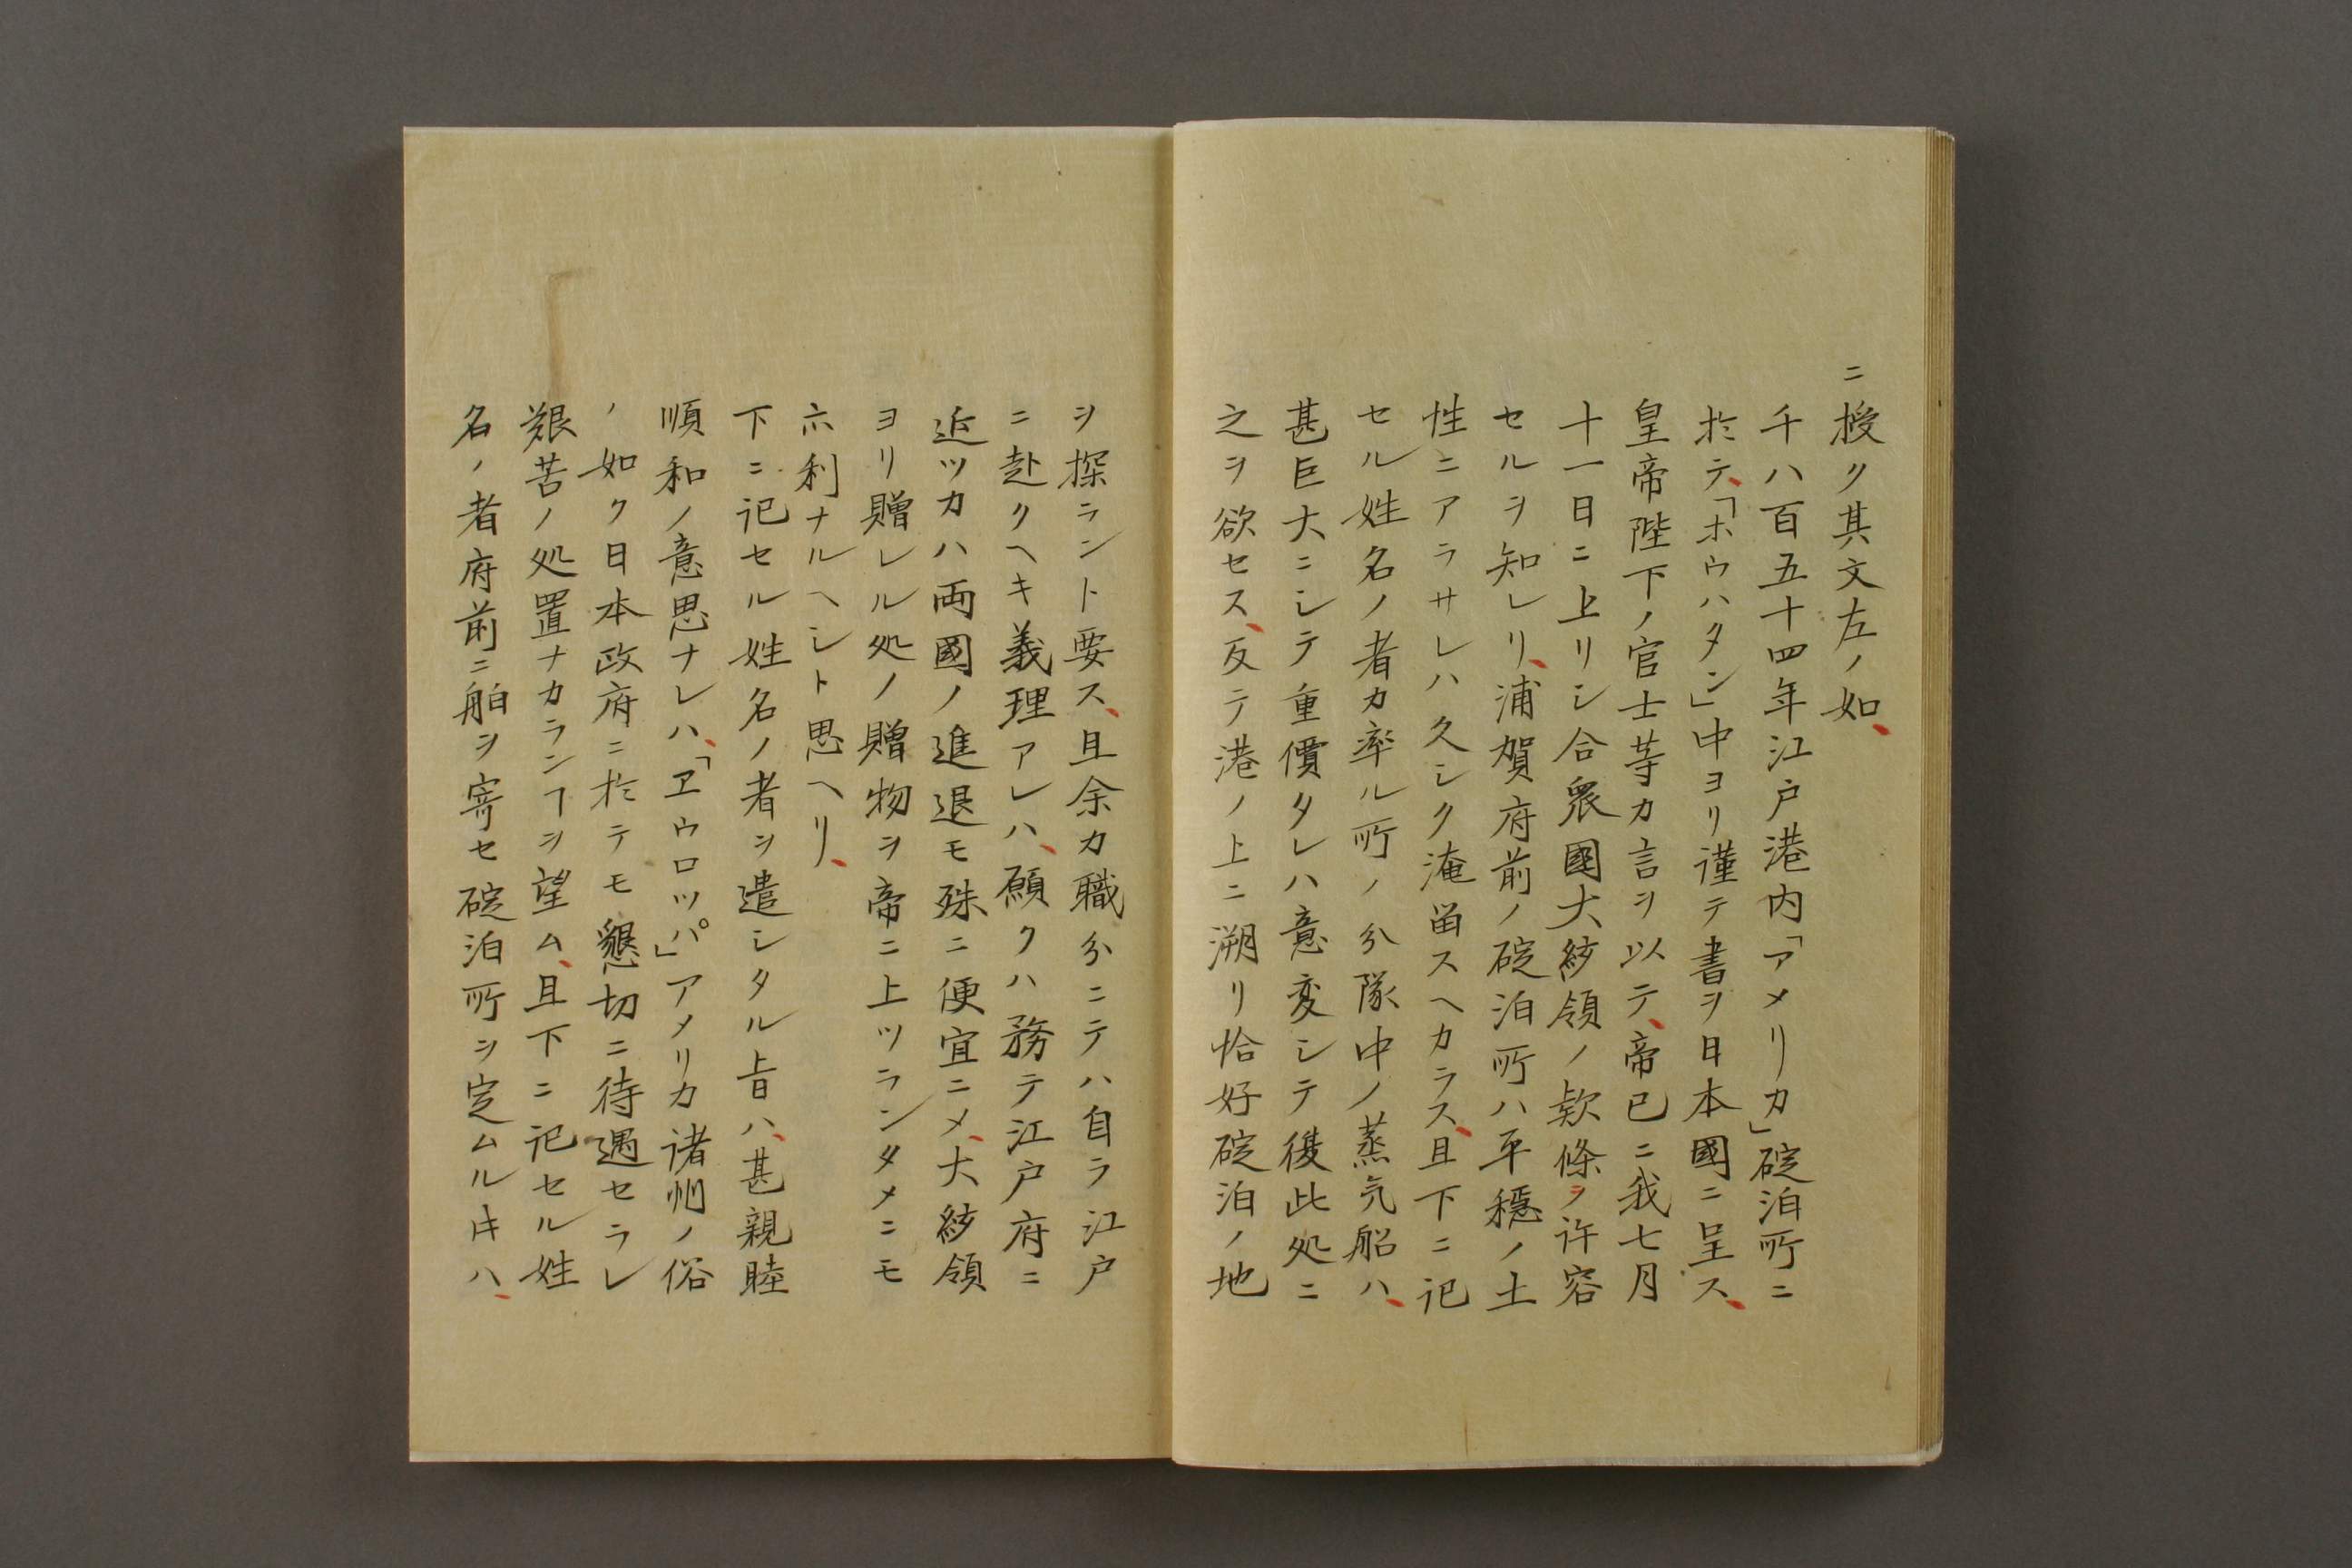 ニ授ク其文左ノ如、
千八百五十四年江戸港内「アメリカ」碇泊所ニ
於テ、「ホウハタン」中ヨリ謹テ書ヲ日本國ニ呈ス、
皇帝陛下ノ官士等カ言ヲ以テ、帝已ニ我七月
十一日ニ上リシ合衆國大統領ノ欵條ヲ許容
セルヲ知レリ、浦賀府前ノ碇泊所ハ平穏ノ土
性ニアラサレハ久シク淹留スヘカラス、且下ニ記
セル姓名ノ者カ率ル所ノ分隊中ノ蒸気船ハ、
甚巨大ニシテ重價タレハ意変シテ後此処ニ
之ヲ欲セス、反テ港ノ上ニ溯リ恰好碇泊ノ地
ヲ探ラント要ス、且余カ職分ニテハ自ラ江戸
ニ赴クヘキ義理アレハ、願クハ務テ江戸府ニ
近ツカハ両國ノ進退モ殊ニ便宜ニメ、大統領
ヨリ贈レル処ノ贈物ヲ帝ニ上ツランタメニモ
亦利ナルヘシト思ヘリ、
下ニ記セル姓名ノ者ヲ遣シタル旨ハ、甚親睦
順和ノ意思ナレハ、「ヱウロツパ」アメリカ諸州ノ俗
ノ如ク日本政府ニ於テモ懇切ニ待遇セラレ
艱苦ノ処置ナカランヿヲ望ム、且下ニ記セル姓
名ノ者府前ニ舶ヲ寄セ碇泊所ヲ定ムル𪜈ハ、